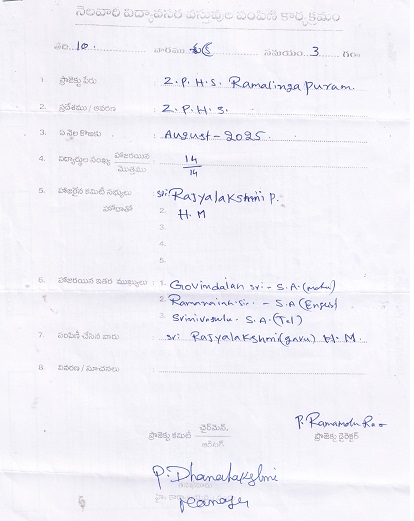 నెలవారీ విద్యావసర వస్తువుల పంపిణీ కార్యక్రమం
తేది 10. వారము సమయం 3 గం॥
1. ప్రాజెక్టు పేరు : Z.P.H.S. Ramalingapuram.
2. ప్రదేశము / ఆవరణ : Z.P.H.S.
3. ఏ నెల కొఱకు : August-2025
4. విద్యార్థుల సంఖ్య హాజరయిన / మొత్తము : 14/14
5. హాజరైన కమిటీ సభ్యులు Sri Rajyalakshmi P.
హోదాతో 2. H.M
3.
4.
5.
6. హాజరయిన ఇతర ముఖ్యులు : 1. Govindaiah Sri - S.A.
2. Ramanaiah - S.A
3. Srinivasulu. S.A. (Tel)
7. పంపిణీ చేసిన వారు : Sri Rajyalakshmi (garu) H.M.
8. వివరణ / సూచనలు :
ప్రాజెక్టు కమిటీ చైర్‌మెన్
P. Ramamohu Rao
ప్రాజెక్టు డైరెక్టర్
P. Dhanalakshmi